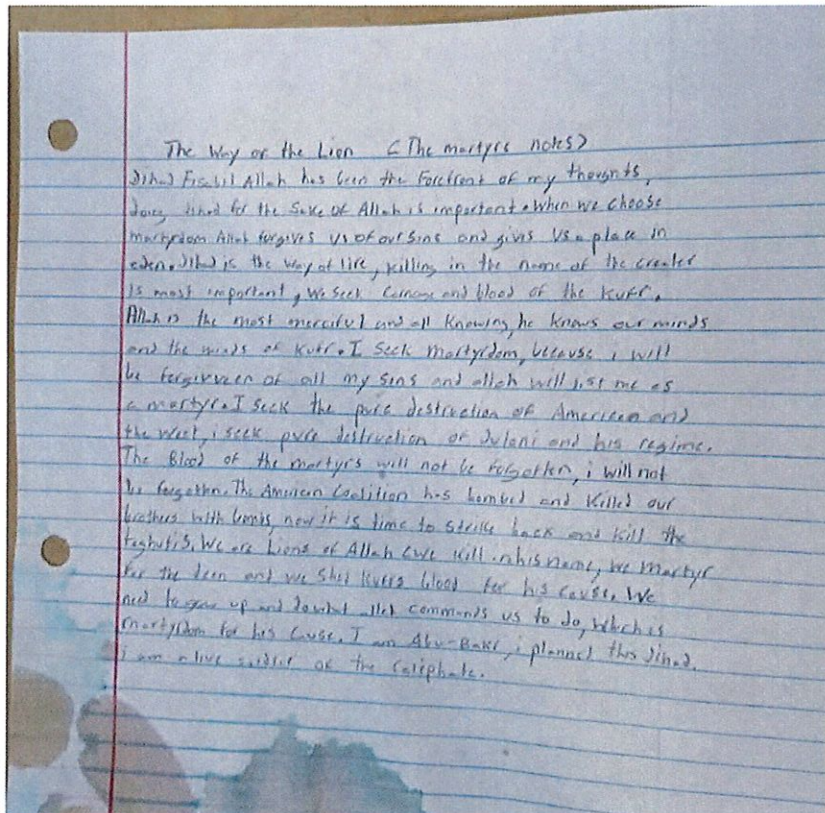 The Way of the Lion (The martyrs notes)
Jihad Fisabil Allah has been the forefront of my thoughts,
doing jihad for the Sake of Allah is important. When we choose
martyrdom Allah forgives us of our sins and gives us a place in
eden. Jihad is the way of life, killing in the name of the creater
is most important, We seek Carnage and blood of the Kufr.
Allah is the most merciful and all Knowing, he knows our minds
and the minds of Kufr. I Seek Martyrdom, because i will
be forgivveen of all my sins and allah will list me as
a martyr. I seek the pure destruction of American and
the West, i seek pure destruction of Julani and his regime.
The Blood of the martyrs will not be forgotten, i will not
be forgotten. The American Coalition has bombed and killed our
brothers with bombs, now it is time to strike back and kill the
taghutis. We are Lions of Allah we kill in his name, we martyr
for the deen and we shed kuffs blood for his cause. We
need to up and do what allah commands us to do, which is
martyrdom for his cause. I am Abu-Bakr, i planned this Jihad.
i am a live soldier of the Caliphate.